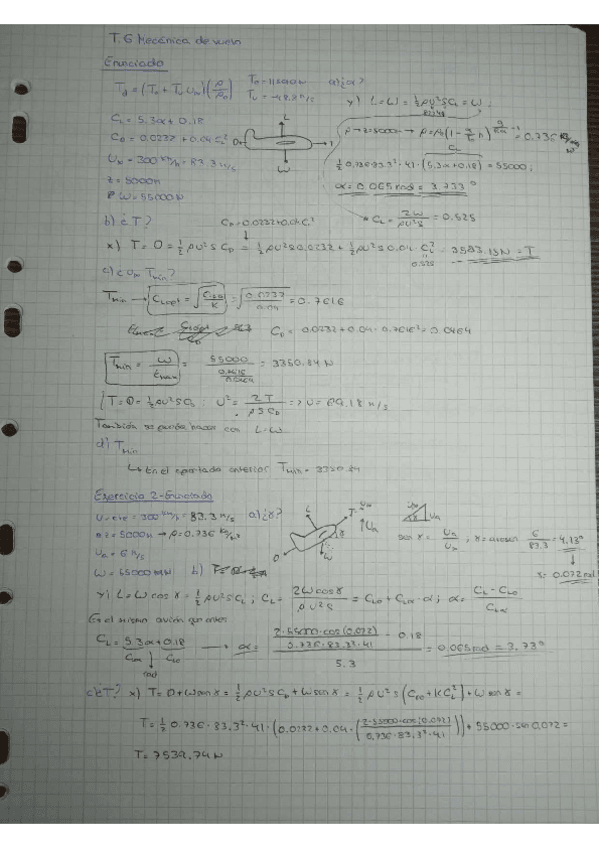 T.6 Mecánica de vuelo
Enunciado
T_d = (T_0 + T_v U_∞)(ρ/ρ_0) a) ¿α?
y) L=W = ½ρU²SC_L = W
C_L = 5.3α + 0.18
C_D = 0.0237 + 0.04 C_L²
U_∞ = 300 km/h = 83.3 m/s
z = 5000m
W = 55000 N
ρ → z=5000 → = 0.736
½ 0.736·83.3²·41·(5.3α+0.18) = 55000
α = 0.065 rad = 3.733°
→ C_L = 2W/ρU²S = 0.525
b) ¿T?
x) T = D = ½ρU²S C_D = 3583.13N = T
c) ¿U_∞ T_min?
T_min → C_Lopt = √(C_D0/K) = 0.7616
C_D = 0.0232 + 0.04·0.7616² = 0.0464
T_min = W/E_max = 55000/ = 3350.84 N
T=D = ½ρU²SC_D : U² = 2T/ρSC_D => U = 69.18 m/s
También se puede hacer con L=W
d) T_min
↳ En el apartado anterior T_min = 3350.84
Ejercicio 2-Enunciado
U=cte = 300 km/h = 83.3 m/s a) ¿γ?
z = 5000m → ρ=0.736
U_a = 6 m/s
W = 55000 N b)
sen γ = U_a/U_∞ ; γ = arcsen 6/83.3 = 4.13°
γ = 0.072 rad
y) L = W cos γ = ½ρU²SC_L ; C_L = 2W cos γ/ρU²S = C_L0 + C_Lα·α ; α = C_L - C_L0/C_Lα
Es el mismo avión que antes
C_L = 5.3α + 0.18 → α = (2·55000·cos(0.072)/0.736·83.3²·41 - 0.18)/5.3 = 0.065 rad = 3.73°
C_Lα C_L0
rad
c) ¿T? x) T = D + W sen γ = ½ρU²SC_D + W sen γ = ½ρU²S(C_D0 + KC_L²) + W sen γ =
T = ½ 0.736·83.3²·41·(0.0237 + 0.04·(2·55000·cos(0.072)/0.736·83.3²·41)) + 55000·sen 0.072 =
T = 7539.74 N